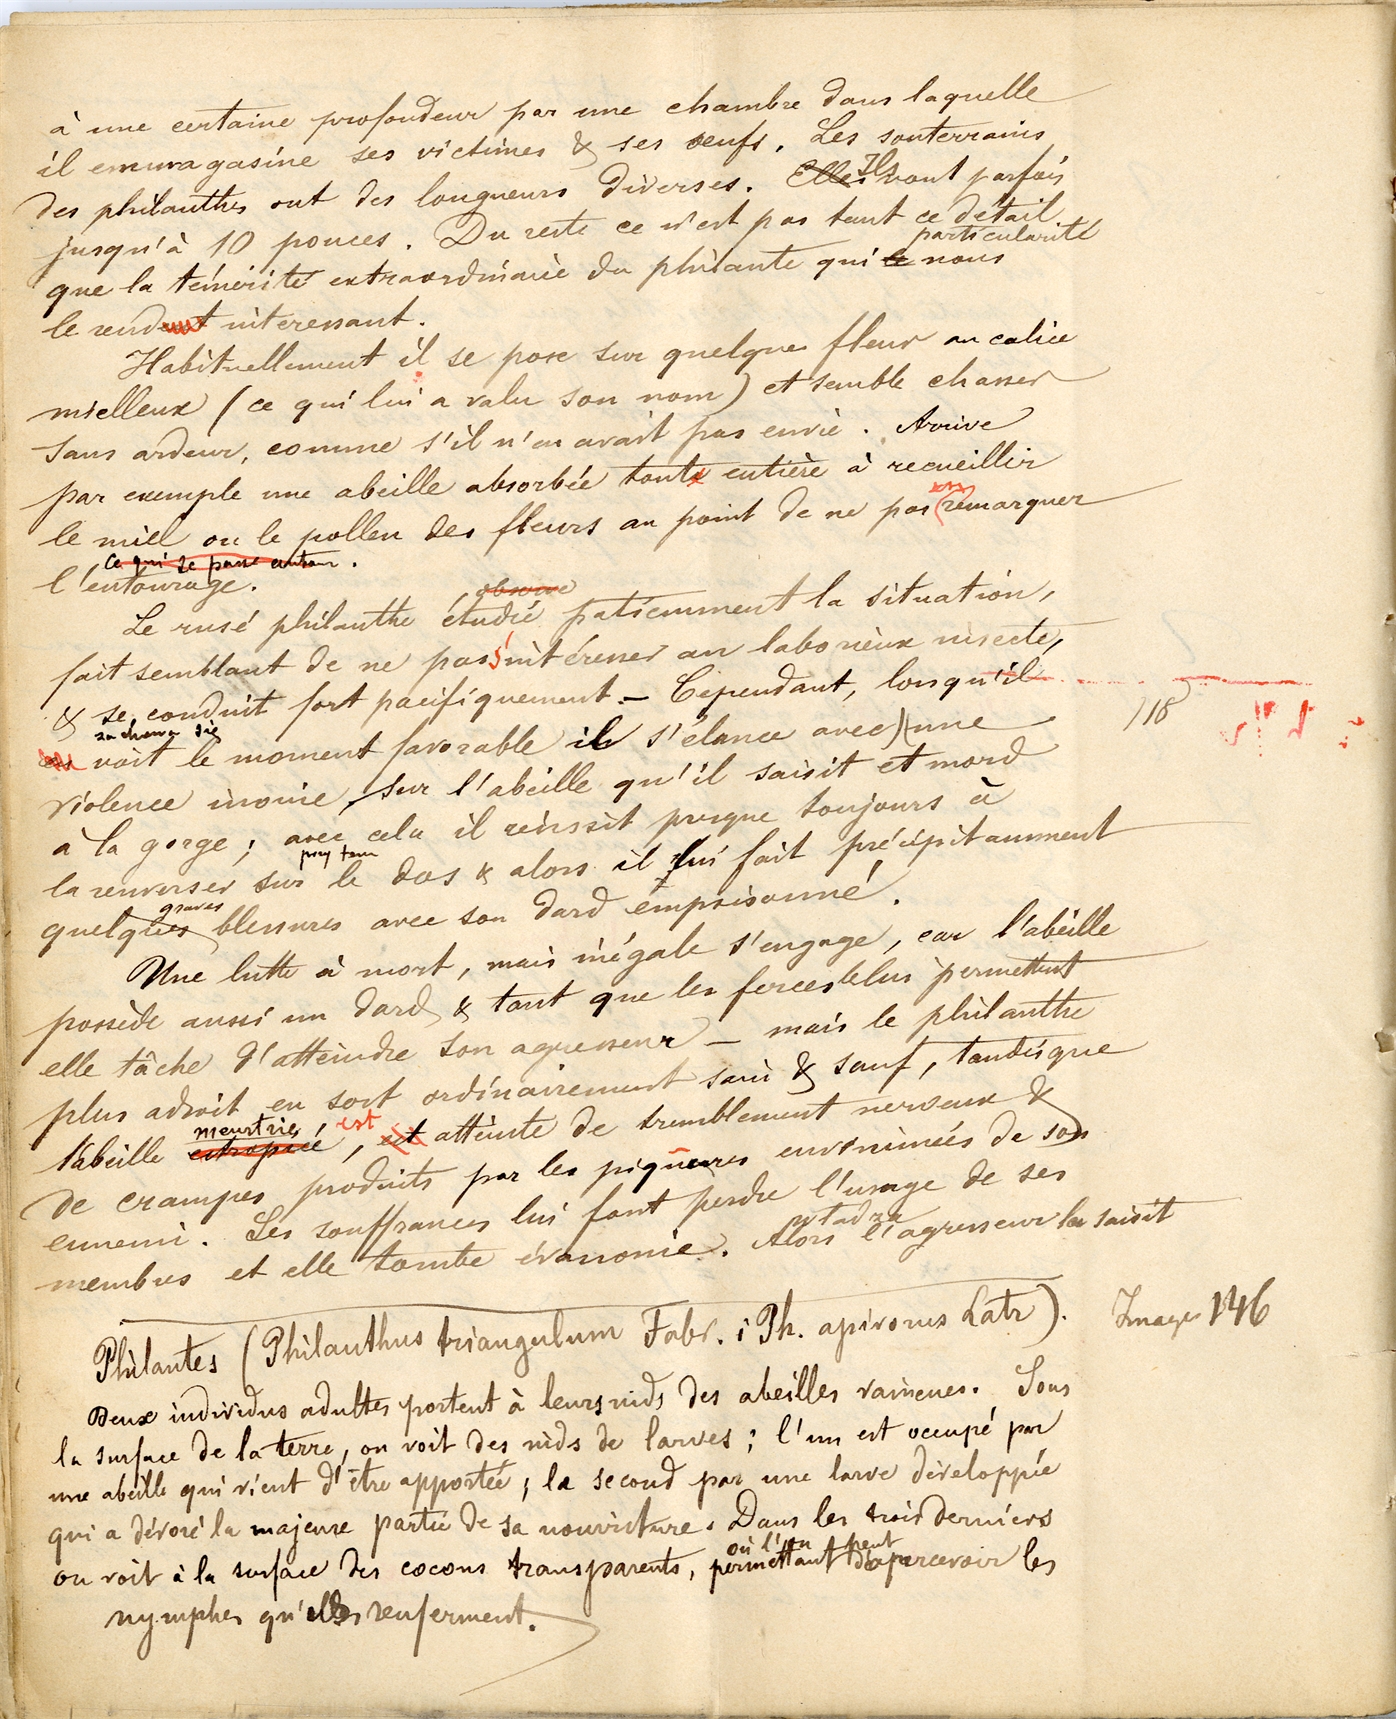 à une certaine profondeur par une chambre dans laquelle
il emmagasine ses victimes & ses œufs. Les souterrains
des philanthes ont des longueurs diverses. Elles Ils vont parfois
jusqu'à 10 pouces. Du reste ce n'est pas tant ce détail
particularité
que la témérité extraordinaire du philante qui le nous
le rendent interessant.
Habituellement il se pose sur quelque fleur au calice
mielleux (ce qui lui a valu son nom) et semble chasser
sans ardeur, comme s'il n'en avait pas envie. Arrive
par exemple une abeille absorbée toute entière à recueillir
le miel ou le pollen des fleurs au point de ne pas remarquer
ce qui se passe autour.
l'entourage.
observe
Le rusé philanthe étudie patiemment la situation,
fait semblant de ne pas s'intéresser au laborieux insecte,
& se conduit fort pacifiquement. – Cependant, lorsqu'il
118
voit le moment favorable il s'élance avec une
violence inouie, sur l'abeille qu'il saisit et mord
à la gorge; avec cela il réussit presque toujours à
la renverser sur le dos & alors il lui fait précipitamment
graves
quelques blessures avec son dard empoisonné.
Une lutte à mort, mais inégale s'engage, car l'abeille
possède aussi un dard & tant que les forces le lui permettent
elle tâche d'atteindre son agresseur – mais le philanthe
plus adroit en sort ordinairement sain & sauf, tandisque
meurtrie, est
l'abeille estropiée, est atteinte de tremblement nerveux &
de crampes produits par les piqueures envenimées de son
ennemi. Les souffrances lui font perdre l'usage de ses
membres et elle tombe évanouie. Alors l'agresseur la saisit
Philantes (Philanthus triangulum Fabr. i Ph. apivorus Latr). Image 146
Deux individus adultes portent à leurs nids des abeilles vaincues. Sous
la surface de la terre, on voit des nids de larves; l'un est occupé par
une abeille qui vient d'être apportée; le second par une larve développée
qui a dévoré la majeure partie de sa nourriture. Dans les trois derniers
où l'on peut
on voit à la surface des cocons transparents, permettant d'apercevoir les
nymphes qu'elles renferment.